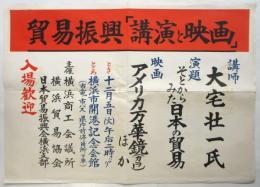 貿易振興「講演と映画」
講師 大宅壮一氏
演題 そとからみた日本の貿易
映画 アメリカ万華鏡
ほか
とき 十二月五日(火)午后二時
ところ 横浜市開港記念会館
主催 横浜商工会議所
横浜貿易協会
日本貿易振興会横浜支部
入場歓迎